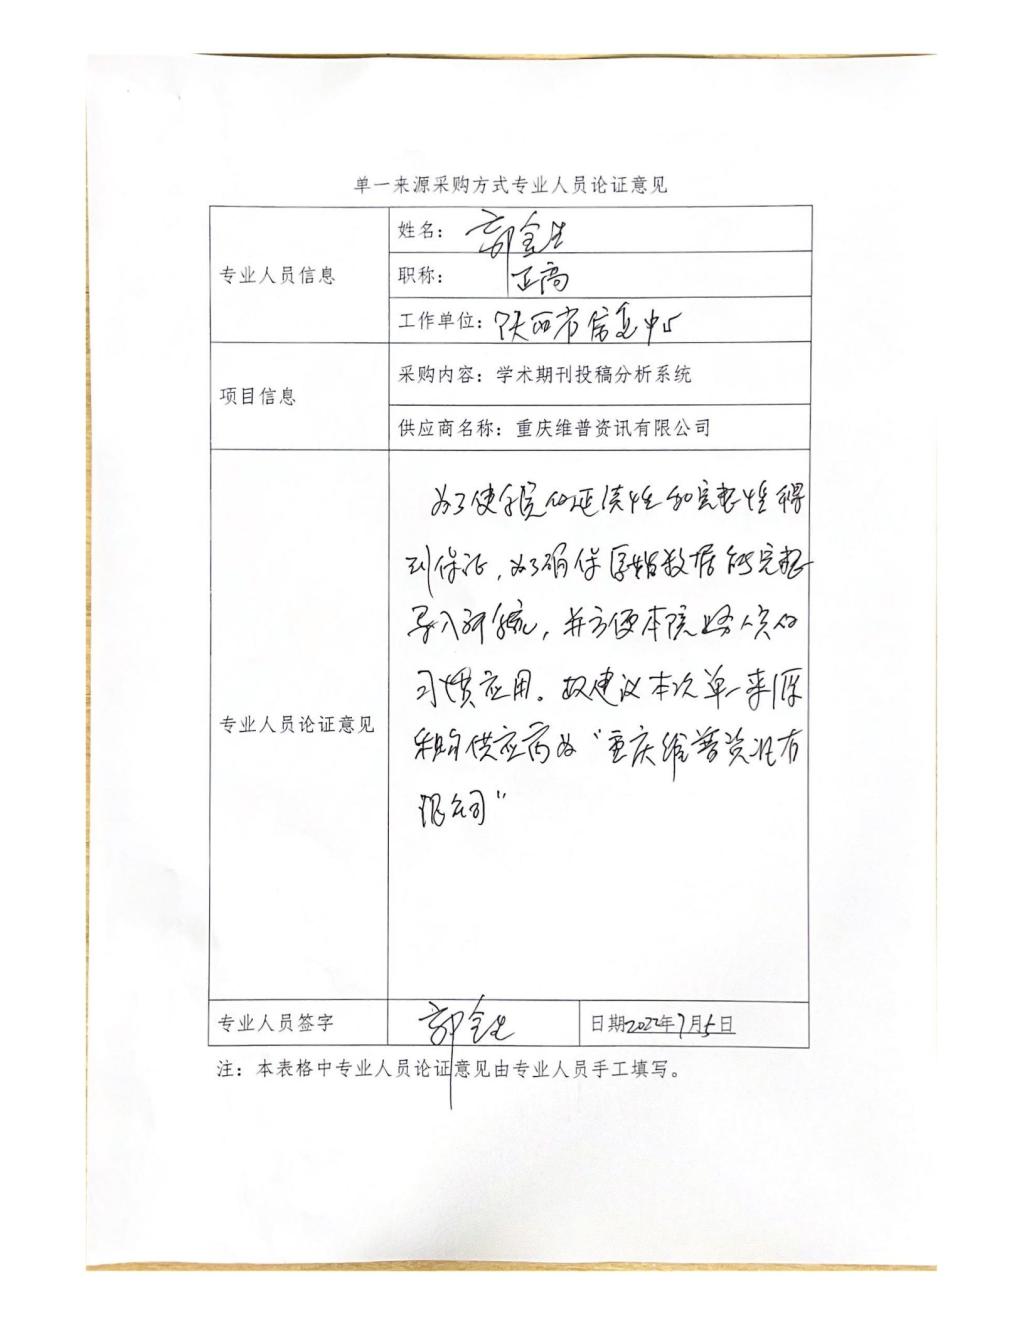 单一来源采购方式专业人员论证意见
专业人员信息
姓名：郭全生
职称：正高
工作单位：陕西省信息中心
项目信息
采购内容：学术期刊投稿分析系统
供应商名称：重庆维普资讯有限公司
专业人员论证意见
为了使学院的延续性和完整性得
到保证，为了确保原始数据的完整
导入新系统，并方便本院业务人员的
习惯应用。故建议本次单一来源
采购供应商为“重庆维普资讯有
限公司”
专业人员签字
郭全生
日期2022年7月5日
注：本表格中专业人员论证意见由专业人员手工填写。